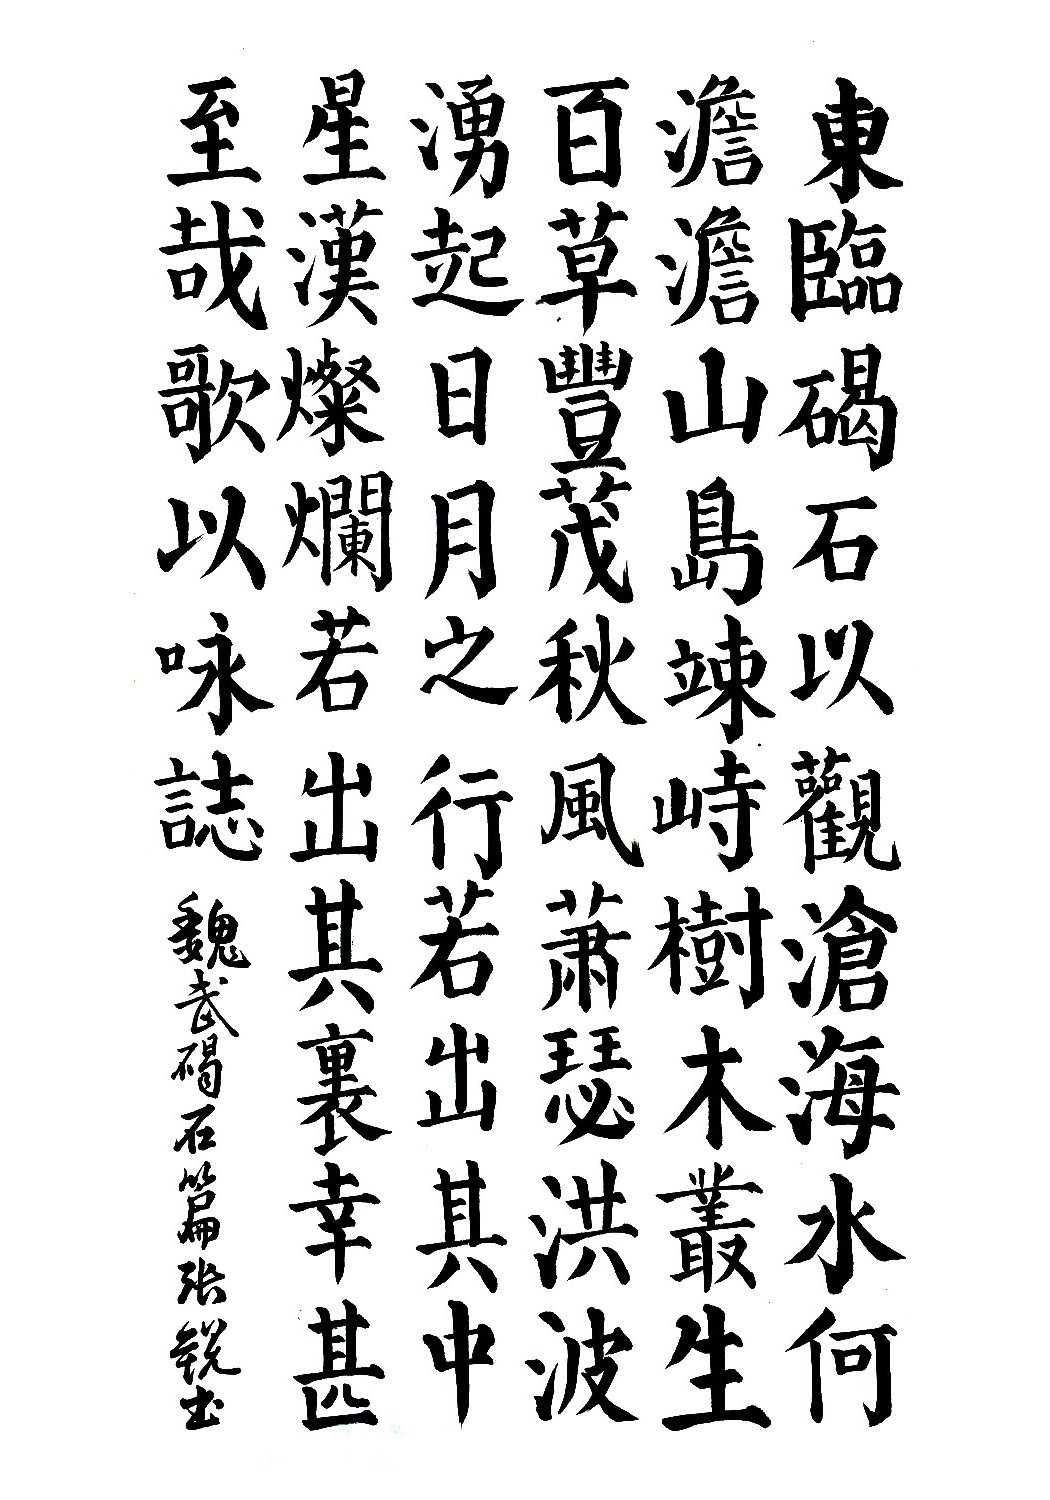 東臨碣石以觀滄海水何
澹澹山島竦峙樹木叢生
百草豐茂秋風蕭瑟洪波
湧起日月之行若出其中
星漢燦爛若出其裏幸甚
至哉歌以咏誌 魏武碣石篇張銳書